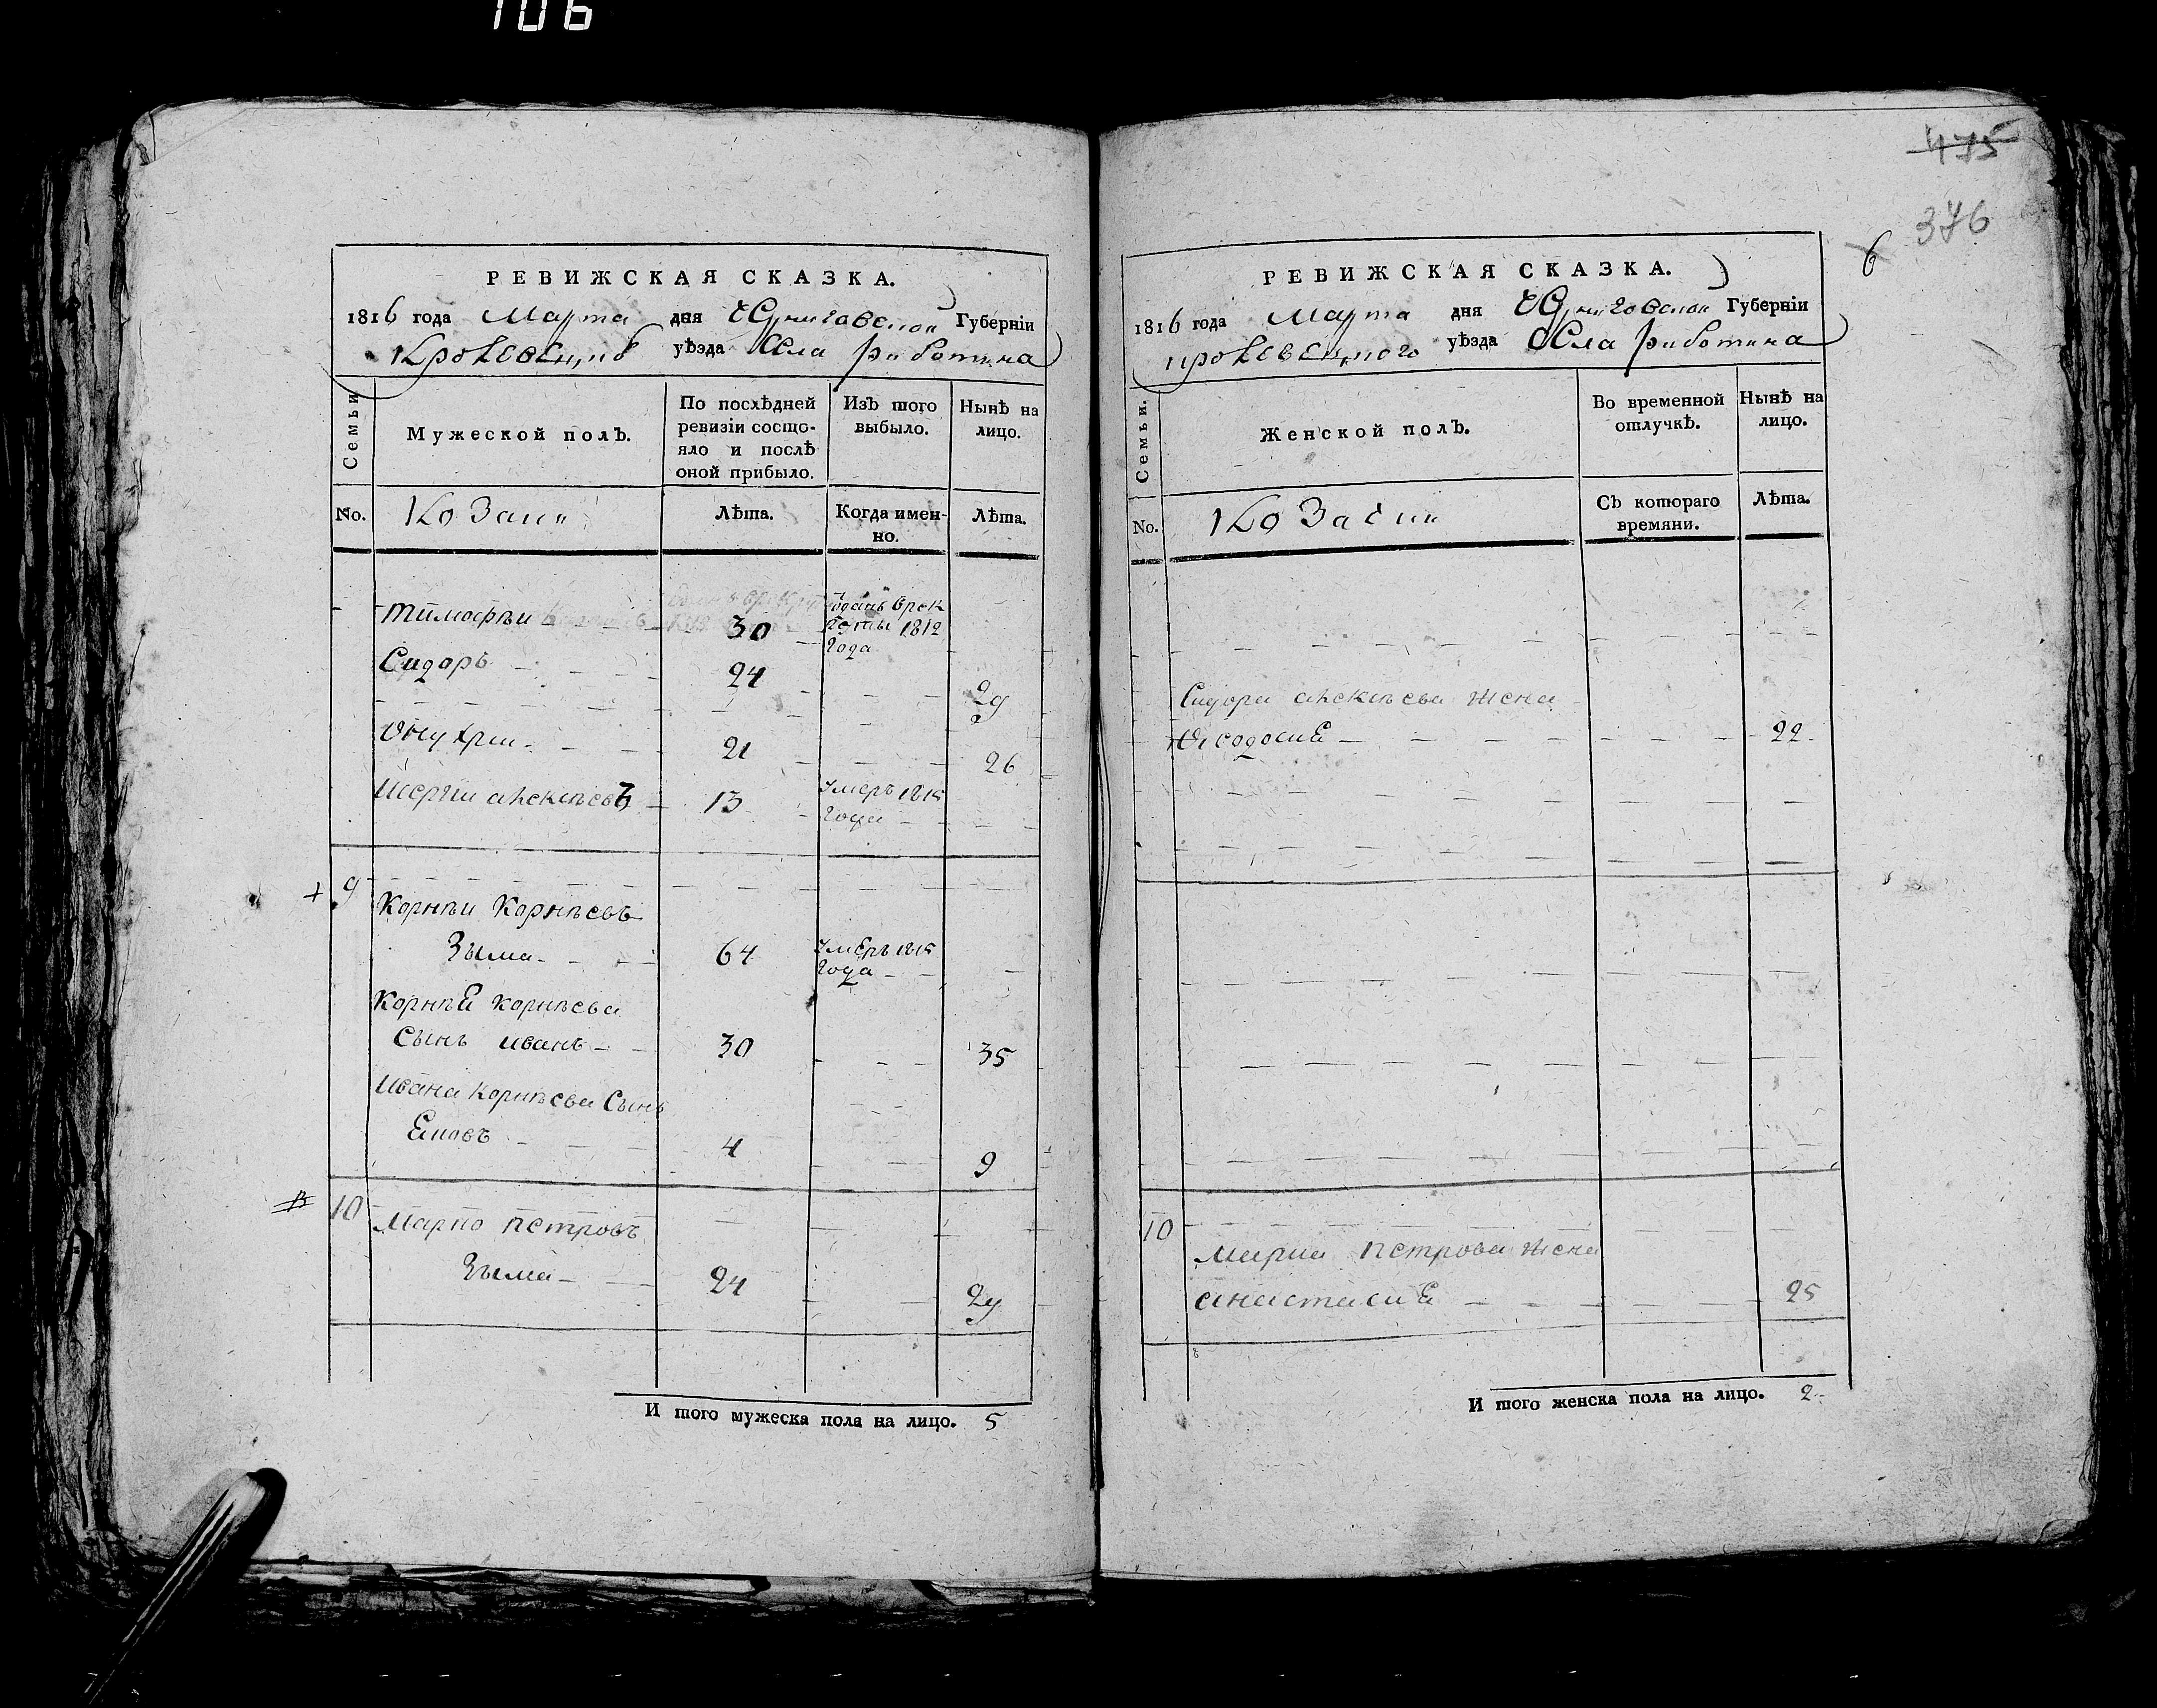 106
475
376
6
РЕВИЖСКАЯ СКАЗКА.
1816 года Марта дня Черниговской Губерніи
Кролевецкого уѣзда Села риботина
Семьи
Мужеской полъ.
По послѣдней
ревизіи состо-
яло и послѣ
оной прибыло.
Изъ того
выбыло.
Нынѣ на
лицо.
No.
Козаки
Лѣта.
Когда имен-
но.
Лѣта.
Тимофѣи 30 Зданъ врек
руты 1812
года
Сидоръ 24
29
Онуфрии 21
26
Сергии алексѣевъ 13 Умеръ 1815
года
9
Корнѣи Корнѣевъ
Зыма 64 Умеръ 1815
года
Корнѣя корнѣева
Сынъ иванъ 30 35
Ивана Корнѣева Сынъ
Яковъ 4 9
10
Марко петровъ
Зыма 24 29
И того мужеска пола на лицо. 5
РЕВИЖСКАЯ СКАЗКА.
1816 года Марта дня Черниговской Губерніи
кролевецкого уѣзда Села риботина
Семьи.
Женской полъ.
Во временной
отлучкѣ.
Нынѣ на
лицо.
No.
Козачки
Съ котораго
времяни.
Лѣта.
Сидора алексѣева жена
Феодосия 22
10
Марка петрова жена
анастасия 25
И того женска пола на лицо. 2